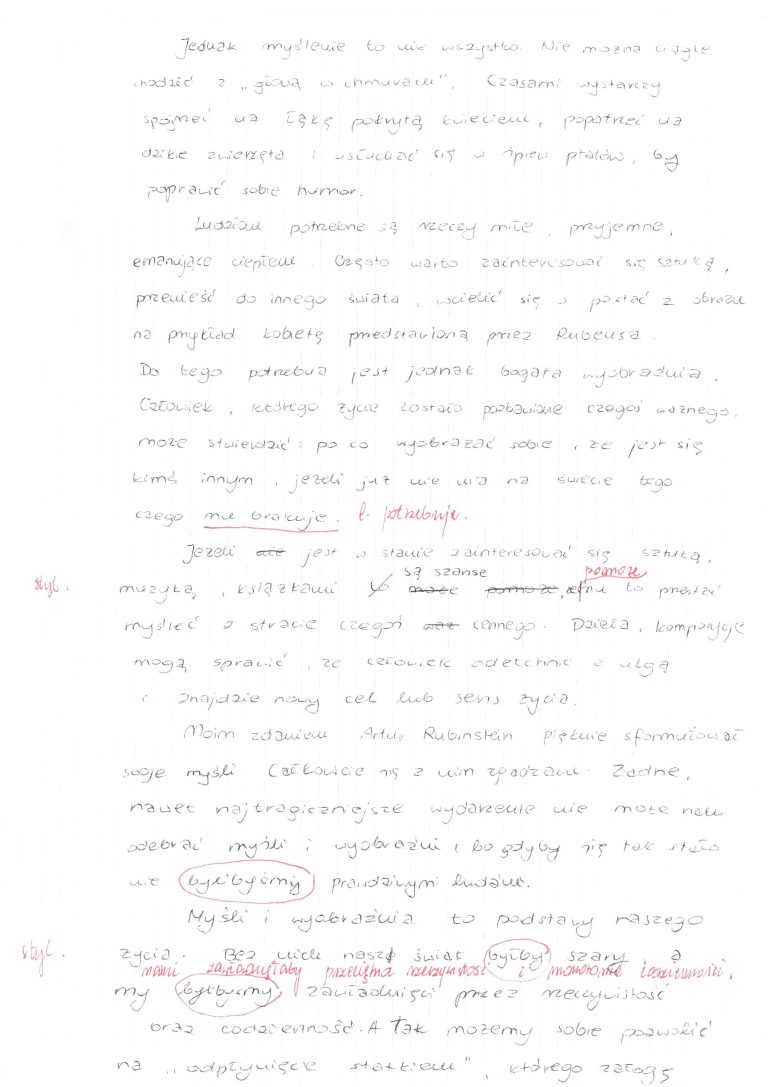 Jednak myślenie to nie wszystko. Nie można ciągle
chodzić z „głową w chmurach". Czasami wystarczy
spojrzeć na łąkę pokrytą kwieciem, popatrzeć na
dzikie zwierzęta i wsłuchać się w śpiew ptaków, by
poprawić sobie humor.
Ludziom potrzebne są rzeczy miłe, przyjemne,
emanujące ciepłem. Często warto zainteresować się sztuką,
przenieść do innego świata, wcielić się w postać z obrazu
na przykład kobietę przedstawioną przez Rubensa.
Do tego potrzebna jest jednak bogata wyobraźnia.
Człowiek, którego życie zostało pozbawione czegoś ważnego.
może stwierdzić: po co wyobrażać sobie, że jest się
kimś innym, jeżeli już nie ma na świecie tego
czego mu brakuje. l. potrzebuje.
Jeżeli nie jest w stanie zainteresować się sztuką,
są szanse pomoże
styl. muzyką, książkami to może pomoże, mu to przestać
myśleć o stracie czegoś cennego. Dzieła, kompozycje
mogą sprawić, że człowiek odetchnie z ulgą
i znajdzie nowy cel lub sens życia.
Moim zdaniem Artur Rubinstein pięknie sformułował
swoje myśli. Całkowicie się z nim zgadzam. Żadne,
nawet najtragiczniejsze wydarzenie nie może nam
odebrać myśli i wyobraźni, bo gdyby się tak stało
nie bylibyśmy prawdziwymi ludźmi.
Myśli i wyobraźnia to podstawy naszego
styl. życia. Bez nich nasz świat byłby szary, a
nami zawładnęłaby przeciętna rzeczywistość i monotonia codzienności.
my bylibyśmy zawładnięci przez rzeczywistość
oraz codzienność. A Tak możemy sobie pozwolić
na „odpłynięcie statkiem", którego załogę